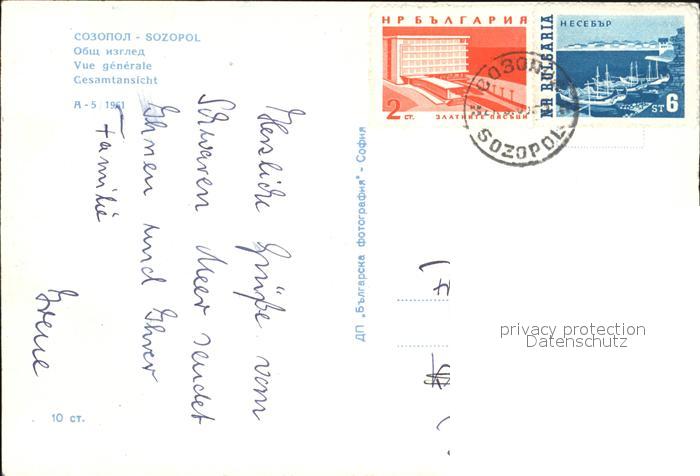 СОЗОПОЛ - SOZOPOL
Общ изглед
Vue générale
Gesamtansicht
А - 5 / 1961
Herzliche Grüße vom
Schwarzen Meer sendet
Ihnen und Ihrer
Familie
Irene
10 ст.
ДП „Българска фотография" - София
Н Р БЪЛГАРИЯ
2 СТ.
ЗЛАТНИТЕ ПЯСЪЦИ
НЕСЕБЪР
N.R. BULGARIA
ST 6
SOZOPOL
privacy protection
Datenschutz